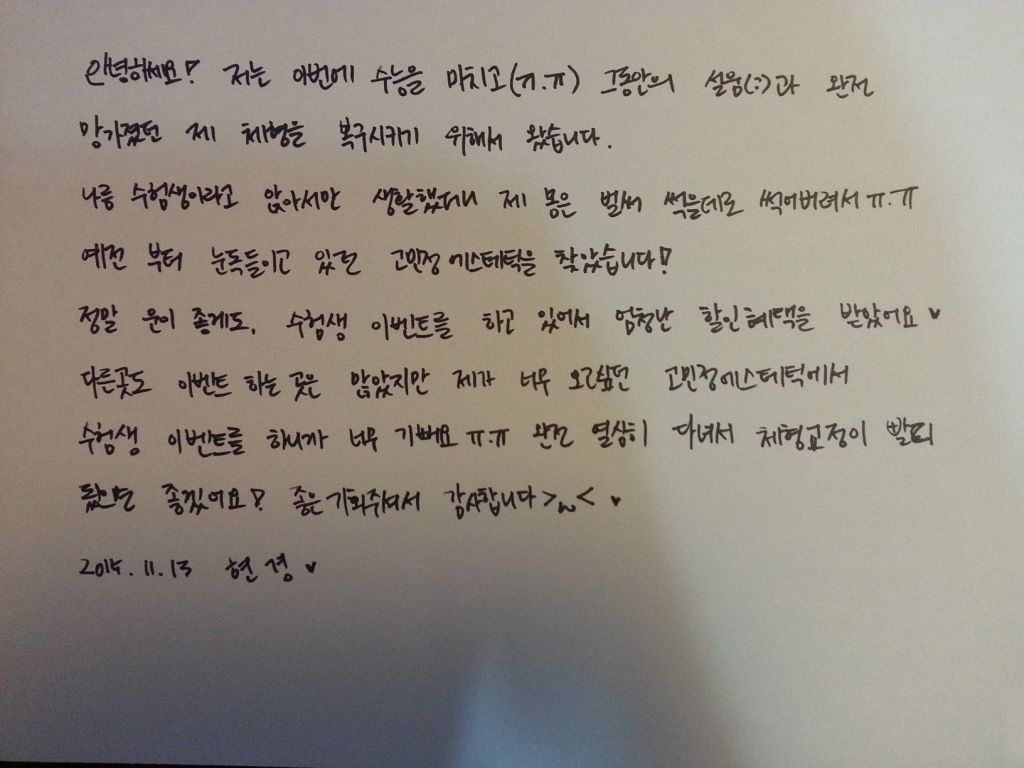 안녕하세요! 저는 이번에 수능을 마치고(ㅠ.ㅠ) 그동안의 설움(:)과 완전
망가졌던 제 체형을 복구시키기 위해서 왔습니다.
나름 수험생이라고 앉아서만 생활했더니 제 몸은 벌써 썩을데로 썩어버려서 ㅠ.ㅠ
예전 부터 눈독들이고 있던 고민정에스테틱을 찾았습니다!
정말 운이 좋게도, 수험생 이벤트를 하고 있어서 엄청난 할인혜택을 받았어요 ♥
다른곳도 이벤트 하는 곳은 많았지만 제가 너무 오고싶던 고민정에스테틱에서
수험생 이벤트를 하니까 너무 기뻐요 ㅠ.ㅠ 완전 열심히 다녀서 체형교정이 빨리
됐으면 좋겠어요! 좋은기회주셔서 감사합니다 >ω< ♥
2015.11.13 현경 ♥